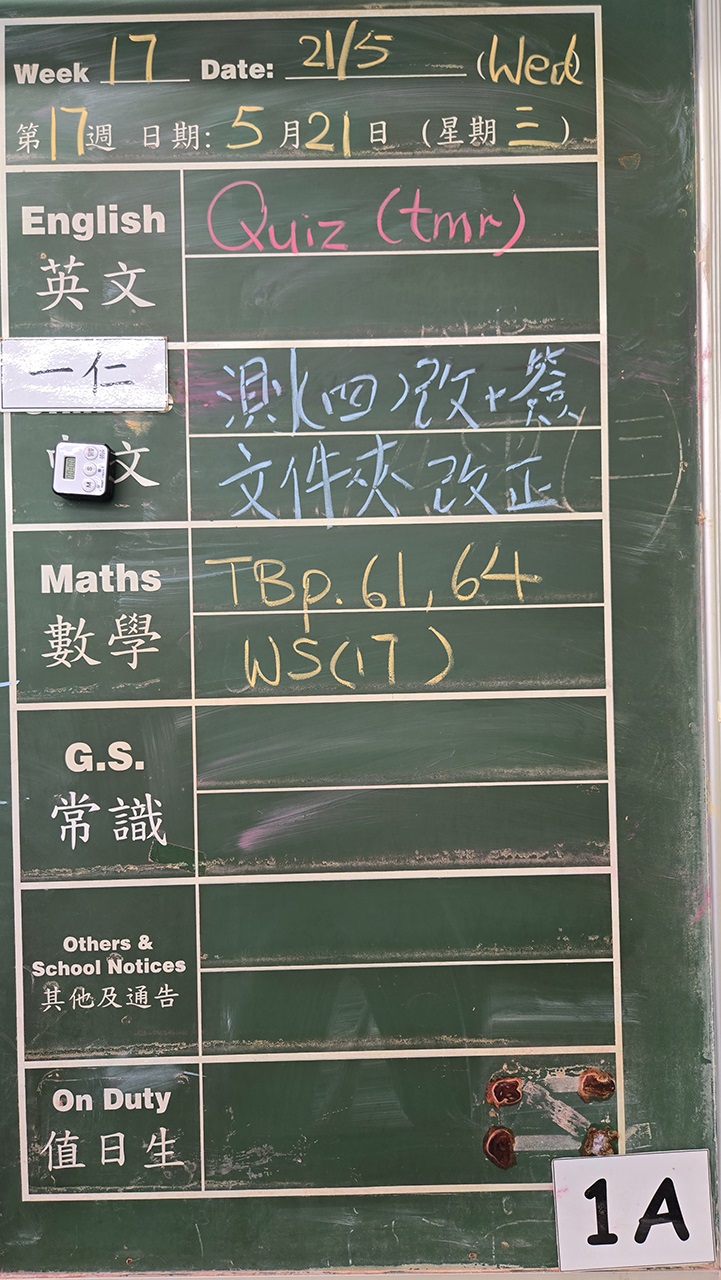 Week 17 Date: 21/5 (Wed)
第17週 日期: 5月21日 (星期三)
English
Quiz (tmr)
英文
一仁
測(四)改+簽
文
文件夾改正
Maths
TBp. 61, 64
數學
WS(17)
G.S.
常識
Others &
School Notices
其他及通告
On Duty
值日生
1A